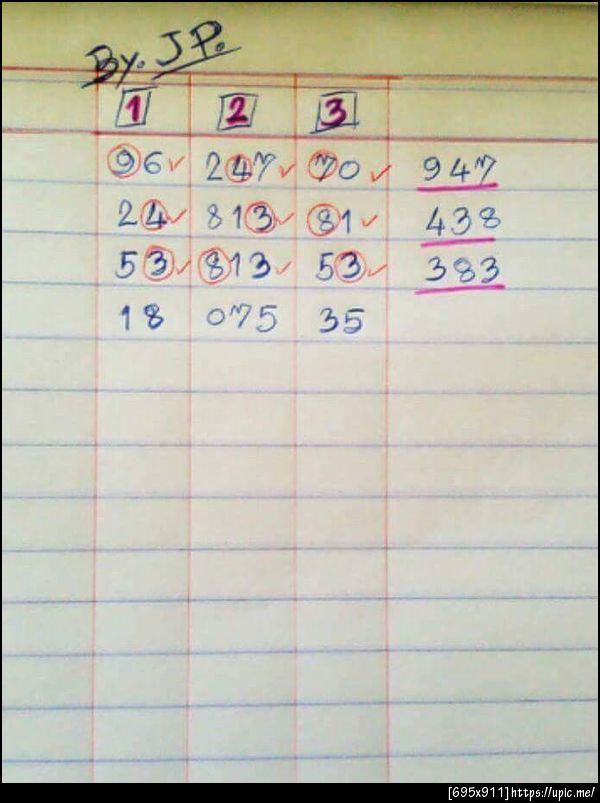 By. J P.
1 2 3
96 ✓ 247 ✓ 70 ✓ 947
24 ✓ 813 ✓ 81 ✓ 438
53 ✓ 813 ✓ 53 ✓ 383
18 075 35
[695x911]https://upic.me/